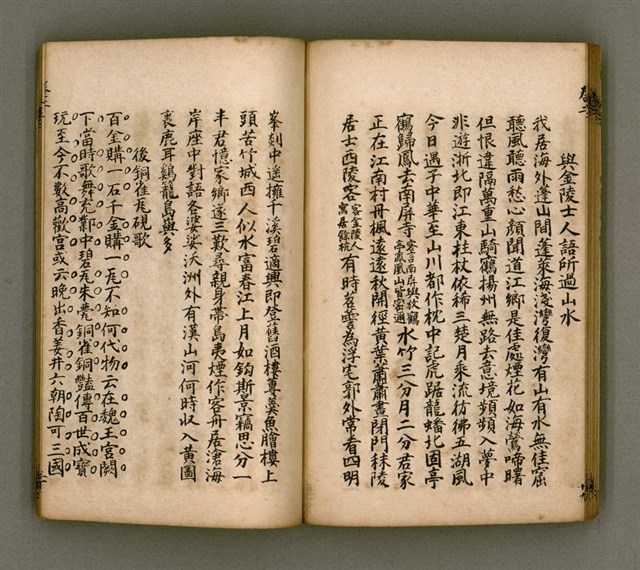 與金陵士人語所過山水
我居海外蓬山間蓬萊海淺灣復灣有山有水無佳窟
聽風聽雨愁心顏聞道江鄉是佳處煙花如海鶯啼曙
但恨違隔萬重山騎鶴揚州無路去意境頻頻入夢中
非遊浙北即江東柱杖依稀三楚月乘流彷彿五湖風
今日過子中華至山川都作枕中記虎踞龍蟠北固亭
鶴歸鳳去南屏寺客言南屏與放鶴亭鳳凰山皆密邇水竹三分月二分君家
正在江南村丹楓遠遠秋開徑黃葉蕭蕭晝閉門秣陵
居士西陵客客金陵人寓居餘杭有時若雲為浮宅郭外常看四明
峯剡中遙擁千溪碧適興即登舊酒樓蓴羹魚膾樓上
頭苦竹城西人似水富春江上月如鈎斯景竊思分一
半君憶家鄉遂三歎尋親身帶島夷煙作客舟居滄海
岸座中對語各婆娑沃洲外有漢山河何時収入黃圖
裏鹿耳鷄籠島與多
後銅雀瓦硯歌
百金購一石千金購一瓦不知何代物云在魏王宮闕
下當時歌舞充鄴中碧瓦朱甍銅雀銅豔傳百世成寶
玩至今不數高歡宮或云晚出香姜井六朝陶可三國